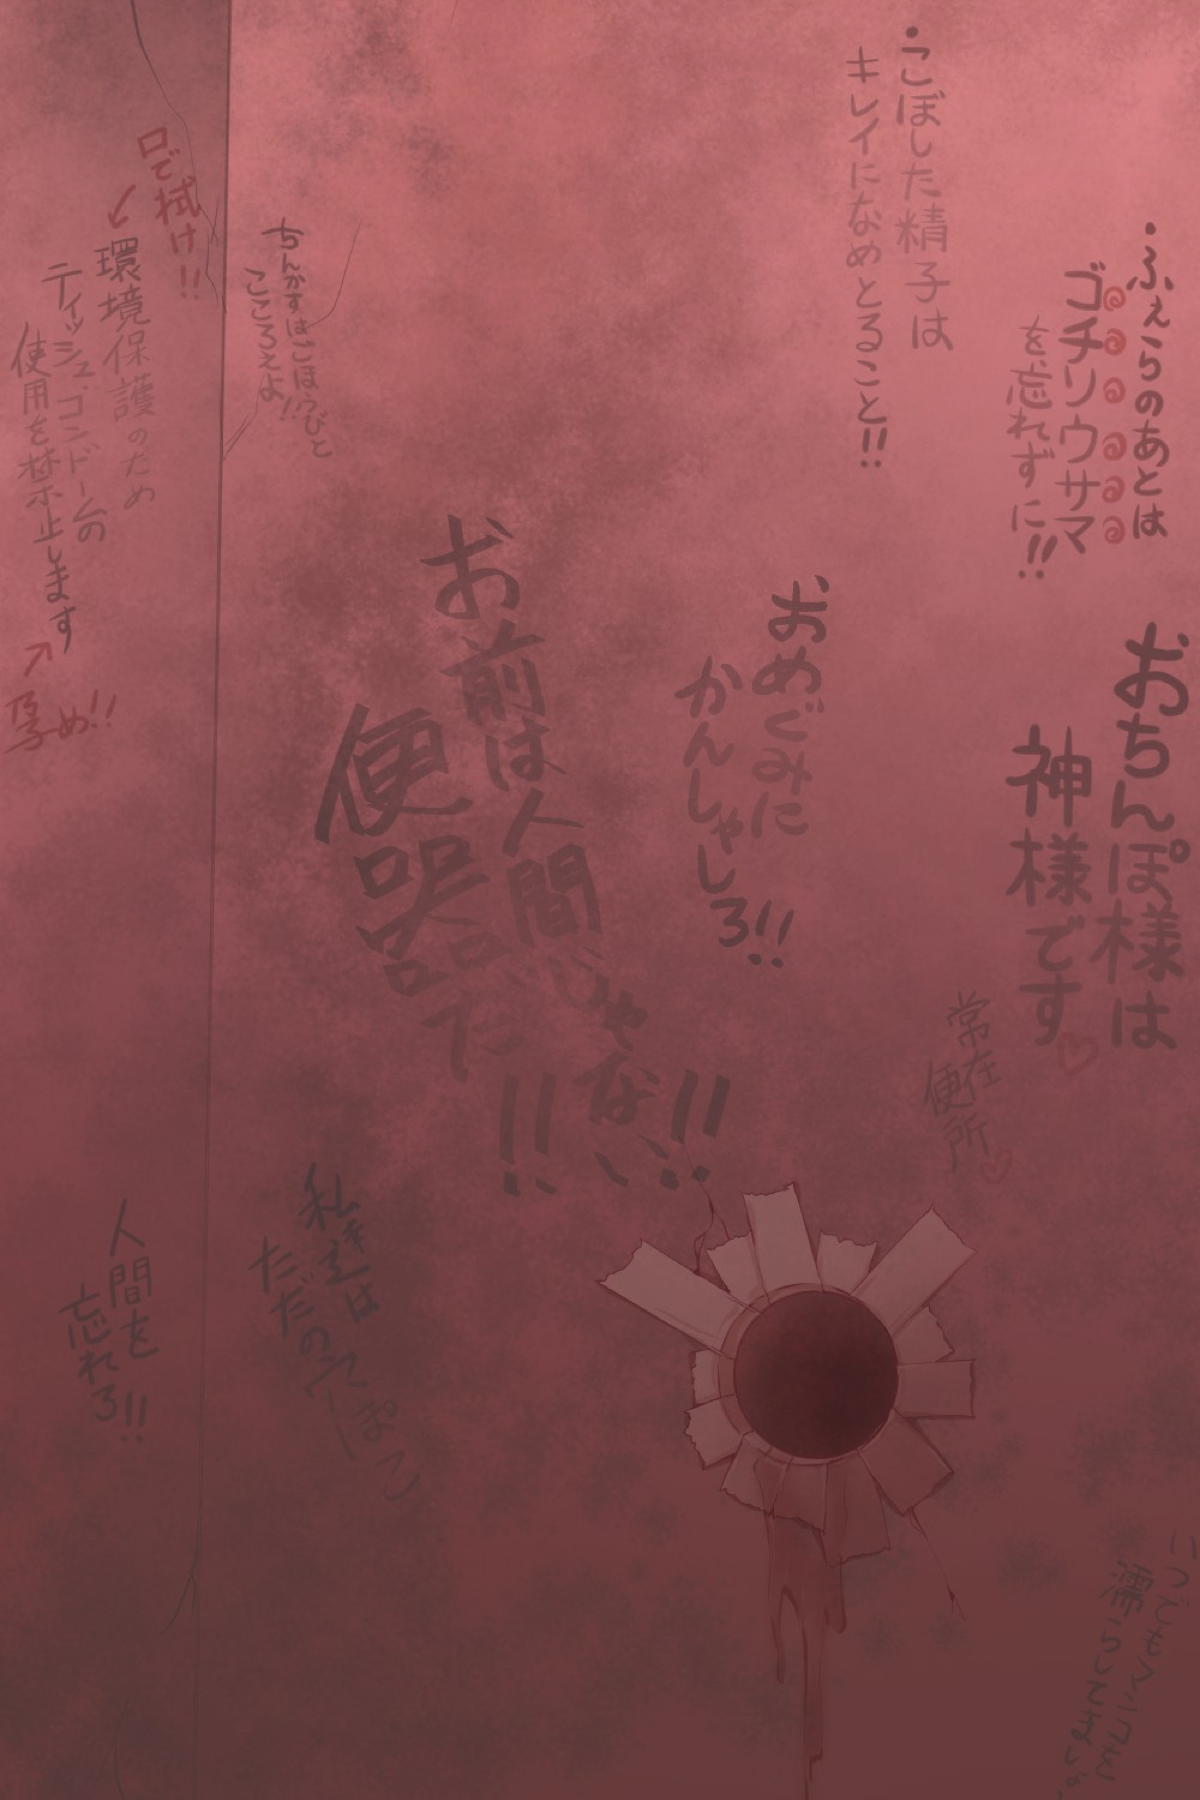 ・ふぇらのあとは
ゴチソウサマ
を、忘れずに!!
・こぼした精子は
キレイになめとること!!
おちんぽ様は
神様です♡
おめぐみに
かんしゃしろ!!
お前は人間じゃない!!
便器だ!!
常在
便所♡
ちんかすはごほうびと
こころえよ!!
口で拭け!!
↙
環境保護のため
ティッシュ・コンドームの
使用を禁止します
↗
孕め!!
人間を
忘れろ!!
ただの
いつでもマンコを
濡らして